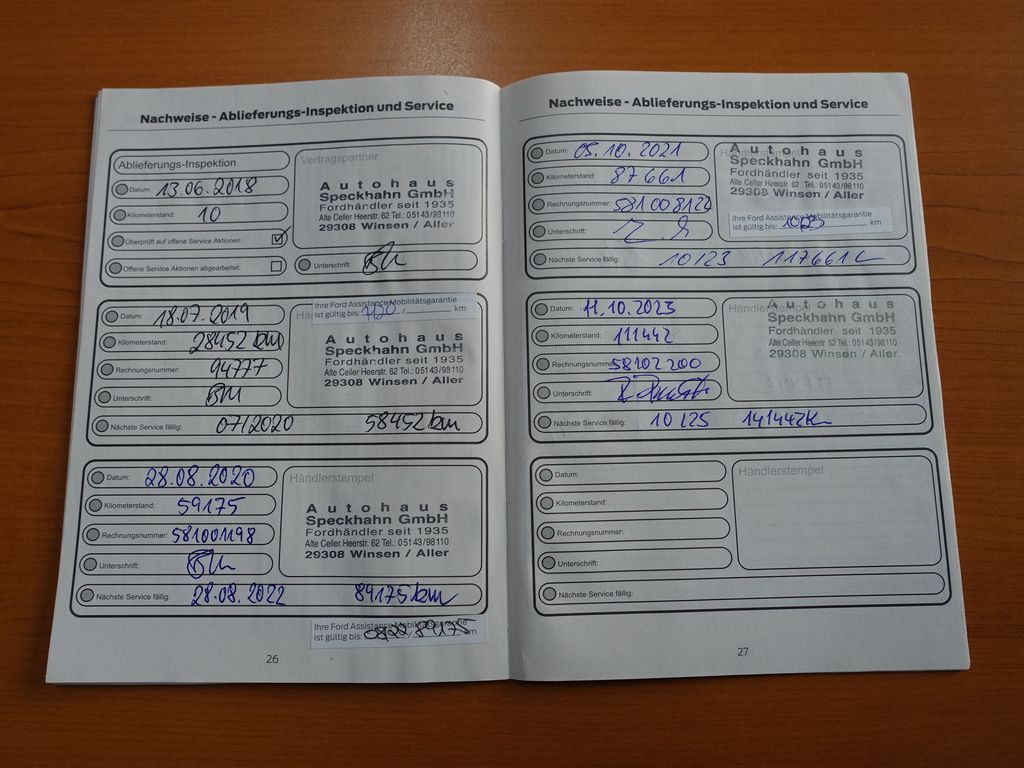 Nachweise - Ablieferungs-Inspektion und Service
Ablieferungs-Inspektion
Datum: 13.06.2018
Kilometerstand: 10
Überprüft auf offene Service Aktionen:
Offene Service Aktionen abgearbeitet:
Vertragspartner
Autohaus
Speckhahn GmbH
Fordhändler seit 1935
Alte Celler Heerstr. 62 Tel.: 05143/98110
29308 Winsen / Aller
Unterschrift:
Datum: 18.07.2019
Kilometerstand: 28452 km
Rechnungsnummer: 94777
Unterschrift:
Nächste Service fällig: 07/2020 58452 km
Ihre Ford Assistance Mobilitätsgarantie
ist gültig bis: 7/20 / km
Autohaus
Speckhahn GmbH
Fordhändler seit 1935
Alte Celler Heerstr. 62 Tel.: 05143/98110
29308 Winsen / Aller
Datum: 28.08.2020
Kilometerstand: 59175
Rechnungsnummer: 581001198
Unterschrift:
Nächste Service fällig: 28.08.2022 89175 km
Händlerstempel
Autohaus
Speckhahn GmbH
Fordhändler seit 1935
Alte Celler Heerstr. 62 Tel.: 05143/98110
29308 Winsen / Aller
Ihre Ford Assistance Mobilitätsgarantie
ist gültig bis: 0822 / 89175 km
26
Nachweise - Ablieferungs-Inspektion und Service
Datum: 05.10.2021
Kilometerstand: 87661
Rechnungsnummer: 581008122
Unterschrift:
Nächste Service fällig: 10/23 117661
Händlerstempel
Autohaus
Speckhahn GmbH
Fordhändler seit 1935
Alte Celler Heerstr. 62 Tel.: 05143/98110
29308 Winsen / Aller
Ihre Ford Assistance Mobilitätsgarantie
ist gültig bis: 10/23 km
Datum: 11.10.2023
Kilometerstand: 111442
Rechnungsnummer: 58102200
Unterschrift:
Nächste Service fällig: 10/25 141442K
Händlerstempel
Autohaus
Speckhahn GmbH
Fordhändler seit 1935
Alte Celler Heerstr. 62 Tel.: 05143/98110
29308 Winsen / Aller
Datum:
Kilometerstand:
Rechnungsnummer:
Unterschrift:
Nächste Service fällig:
Händlerstempel
27